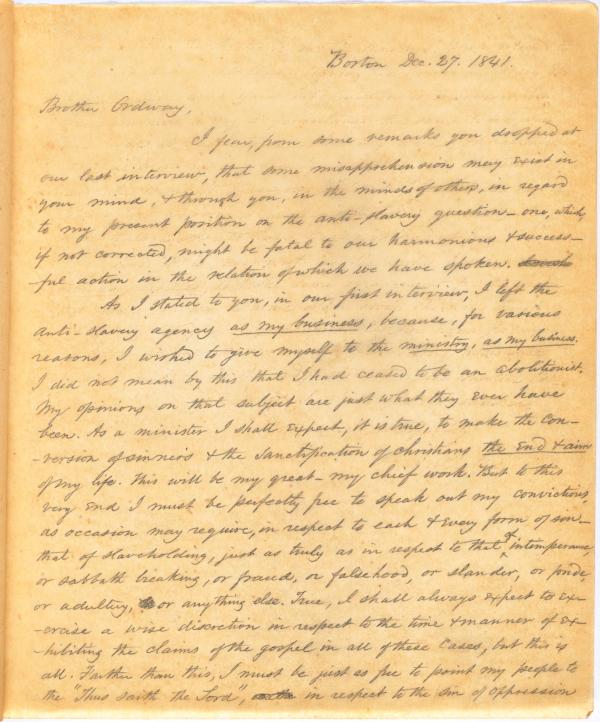 Boston Dec. 27. 1841.
Brother Ordway,
I fear, from some remarks you dropped at
our last interview, that some misapprehension may exist in
your mind, & through you, in the minds of others, in regard
to my present position on the anti-slavery question - one, which,
if not corrected, might be fatal to our harmonious & success-
-ful action in the relation of which we have spoken.
As I stated to you, in our first interview, I left the
anti-slavery agency as my business, because, for various
reasons, I wished to give myself to the ministry, as my business.
I did not mean by this that I had ceased to be an abolitionist.
My opinions on that subject are just what they ever have
been. As a minister I shall expect, it is true, to make the con-
-version of sinners & the sanctification of christians the end & aim
of my life. This will be my great - my chief work. But to this
very end I must be perfectly free to speak out my convictions,
as occasion may require, in respect to each & every form of sin -
that of slaveholding, just as truly as in respect to that of intemperance
or sabbath breaking, or fraud, or falsehood, or slander, or pride,
or adultery, or anything else. True, I shall always expect to ex-
-ercise a wise discretion in respect to the time & manner of ex-
-hibiting the claims of the gospel in all of these cases, but this is
all. Farther than this, I must be just as free to point my people to
the "Thus saith the Lord", in respect to the sin of oppression